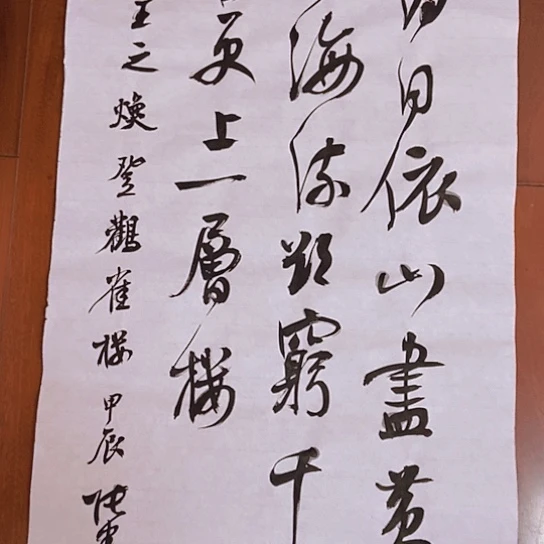 白日依山盡黄
海流欲窮千
更上一層楼
王之煥登鸛雀楼甲辰